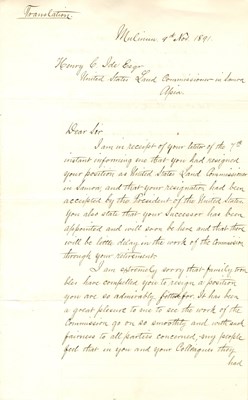 Translation.
Mulinuu, 9th Nov. 1891.
Henry C. Ide Esqr
United States Land Commissioner in Samoa
Apia.
Dear Sir,
I am in receipt of your letter of the 7th
instant informing me that you had resigned
your position as United States Land Commissioner
in Samoa and that your resignation had been
accepted by the President of the United States.
You also state that your Successor has been
appointed and will soon be here and that there
will be little delay in the work of the Commission
through your retirement.
I am extremely sorry that family trou
bles have compelled you to resign a position
you are so admirably fitted for. It has been
a great pleasure to me to see the work of the
Commission go on so smoothly and with such
fairness to all parties concerned, my people
feel that in you and your Colleagues they
had